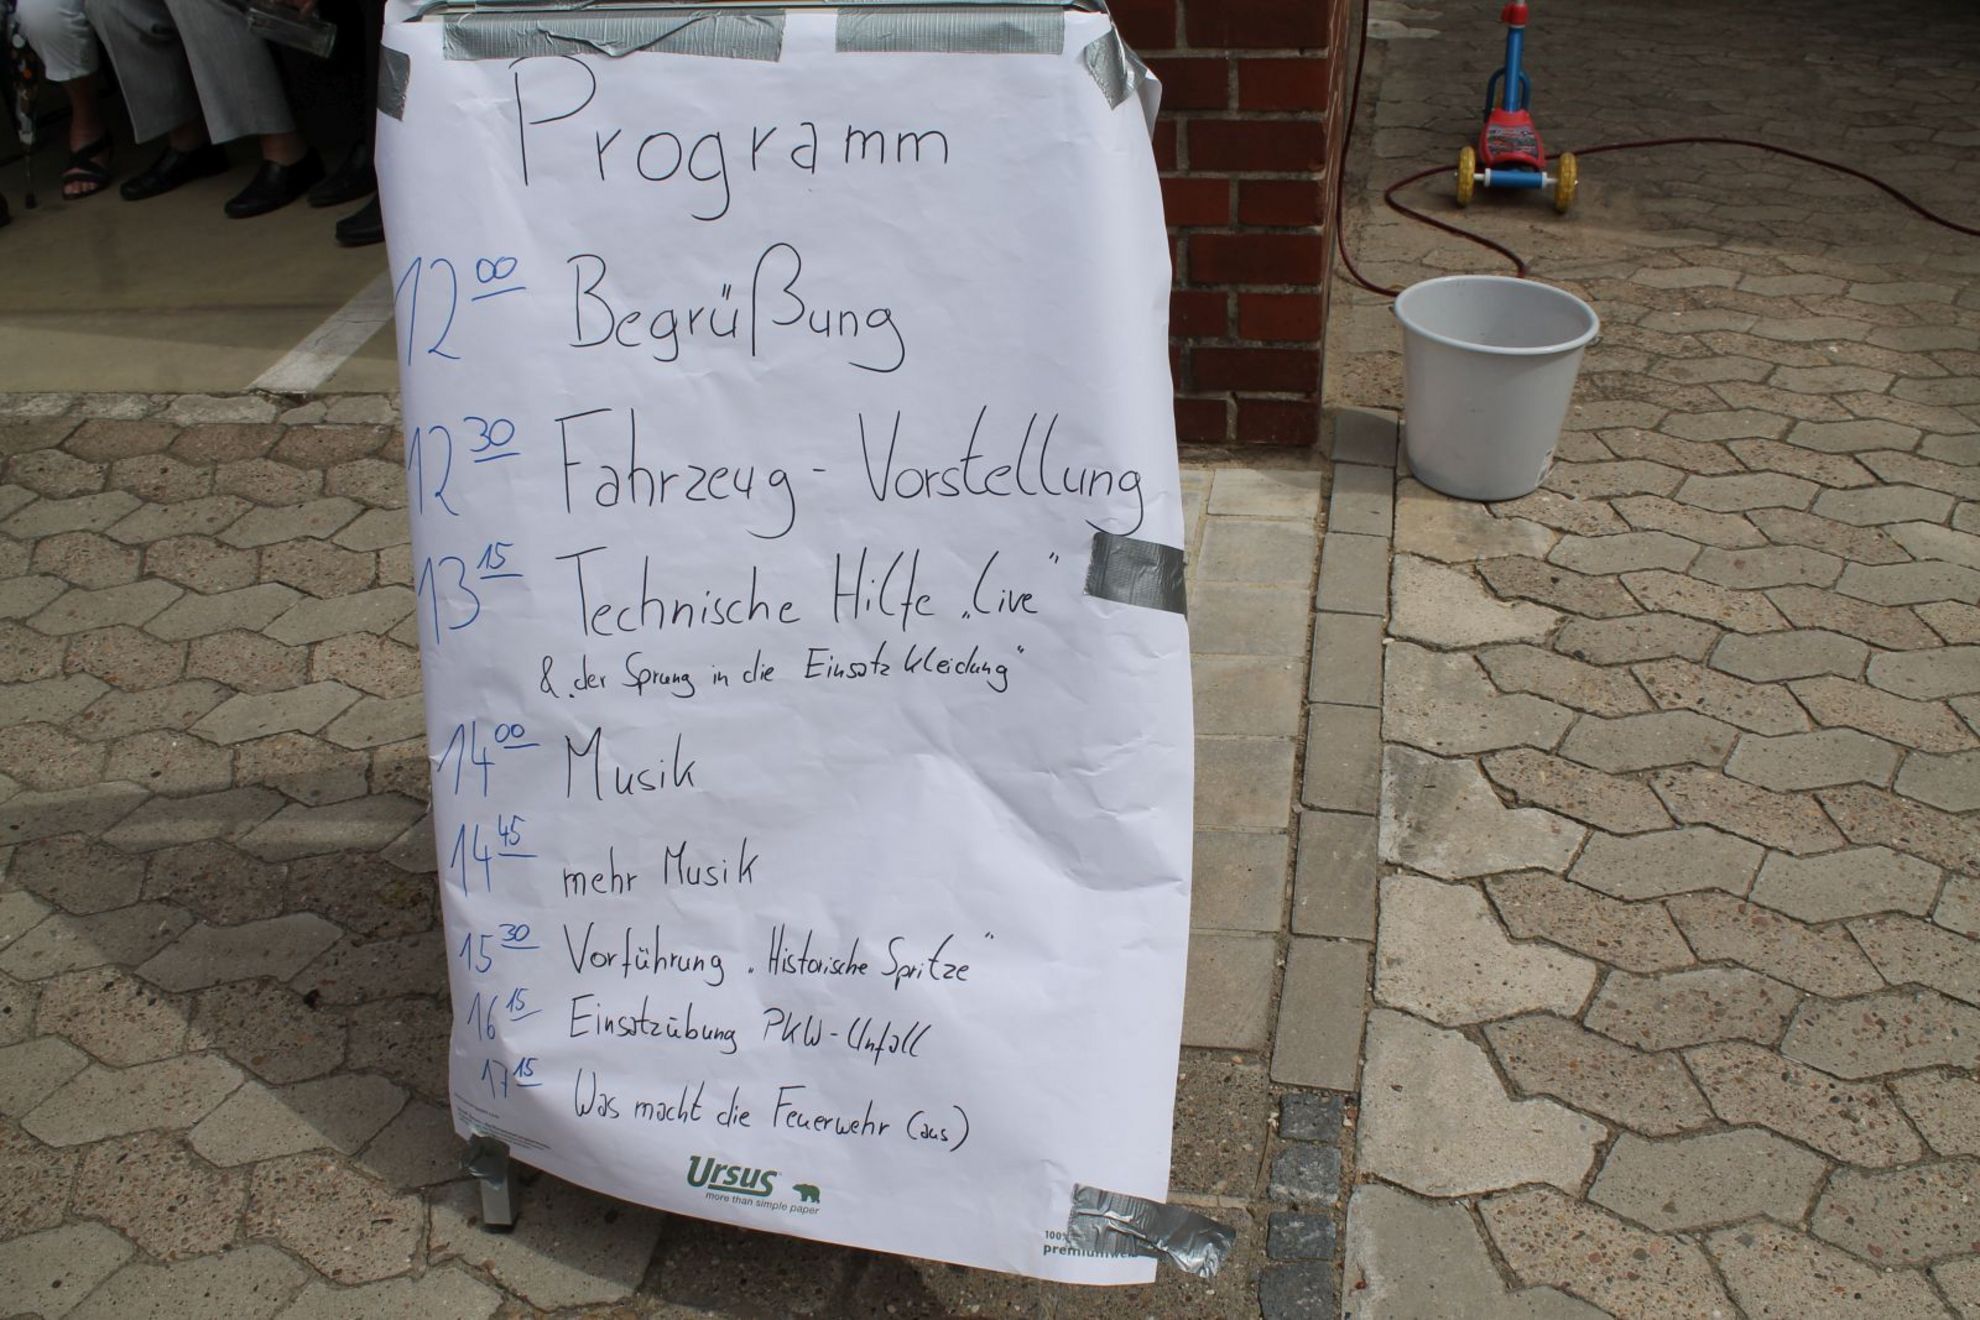 Programm
12 00 Begrüßung
12 30 Fahrzeug - Vorstellung
13 15 Technische Hilfe „Live“
& „der Sprung in die Einsatzkleidung“
14 00 Musik
14 45 mehr Musik
15 30 Vorführung „Historische Spritze“
16 15 Einsatzübung PKW-Unfall
17 15 Was macht die Feuerwehr (aus)
Ursus
more than simple paper
100%